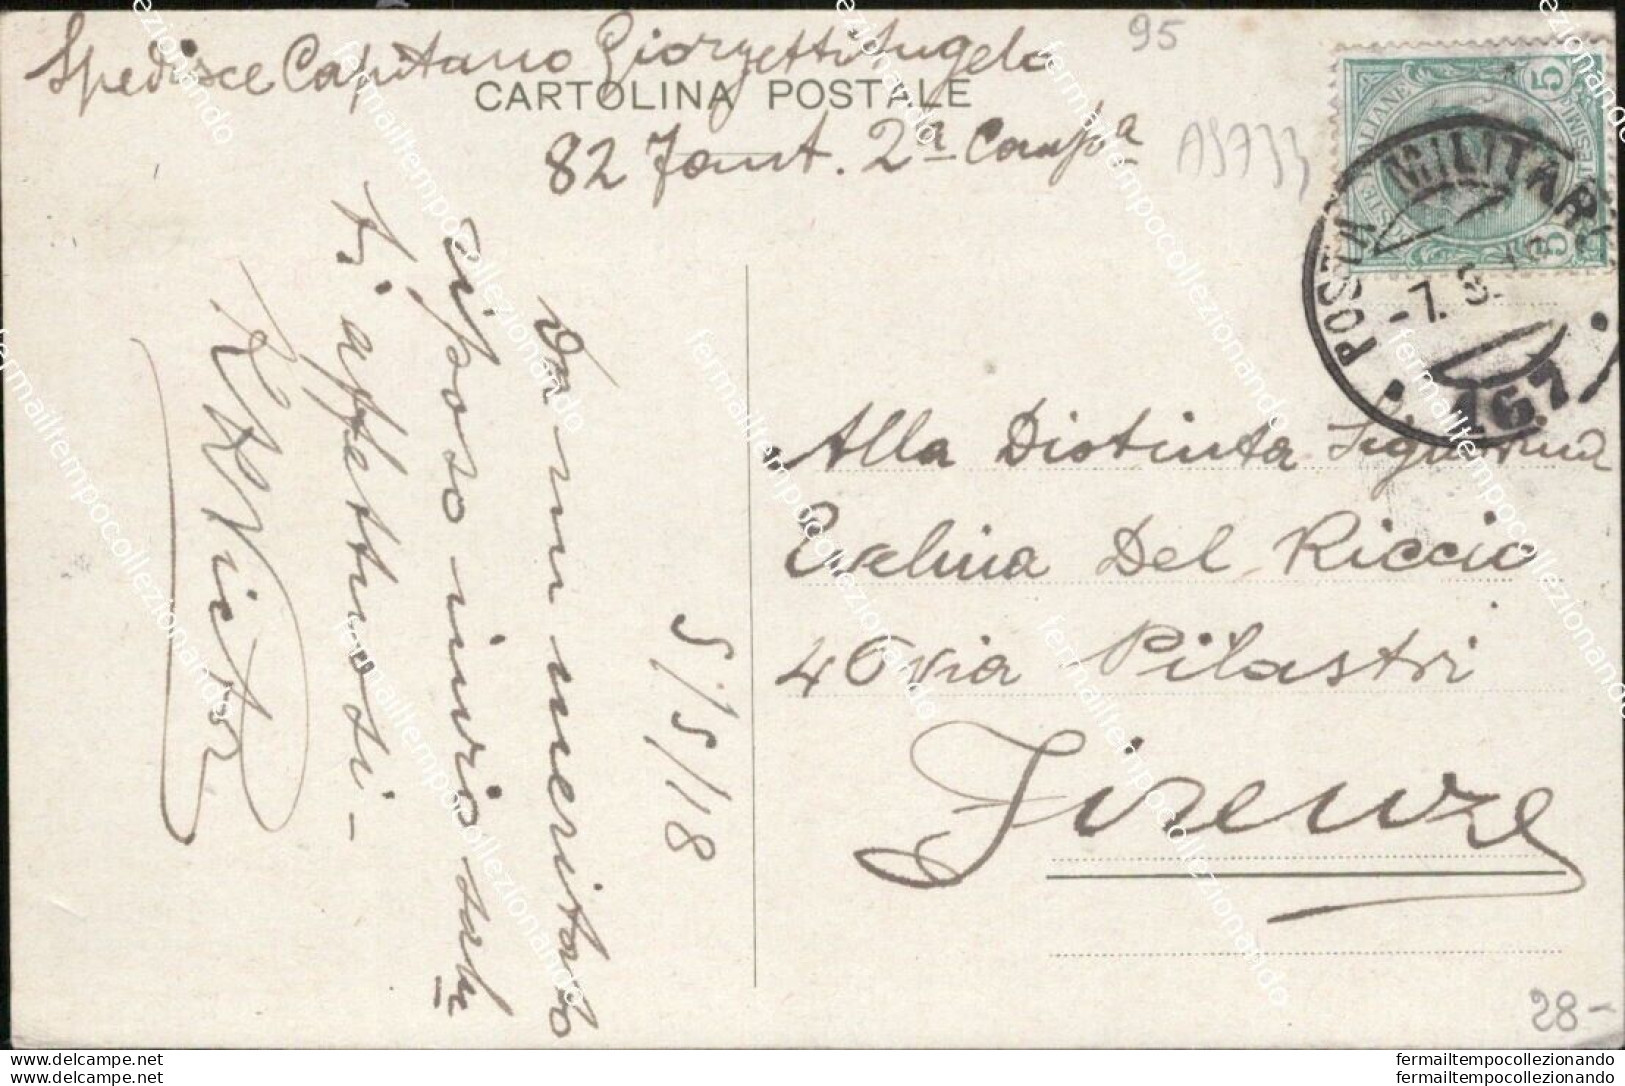 Spedisce Capitano Giorzetti Angelo
CARTOLINA POSTALE
82 Fant. 2ª Compª
95
5
5
POSTA MILITARE
-7. 5. 18
167
5/5/18
Da un meritato
riposo invio salu
ti affettuosi -
Alla Distinta Signorina
Evelina Del Riccio
46 via Pilastri
Firenze
28-
www.delcampe.com
www.delcampe.com
fermailtempocollezionando
fermailtempocollezionando